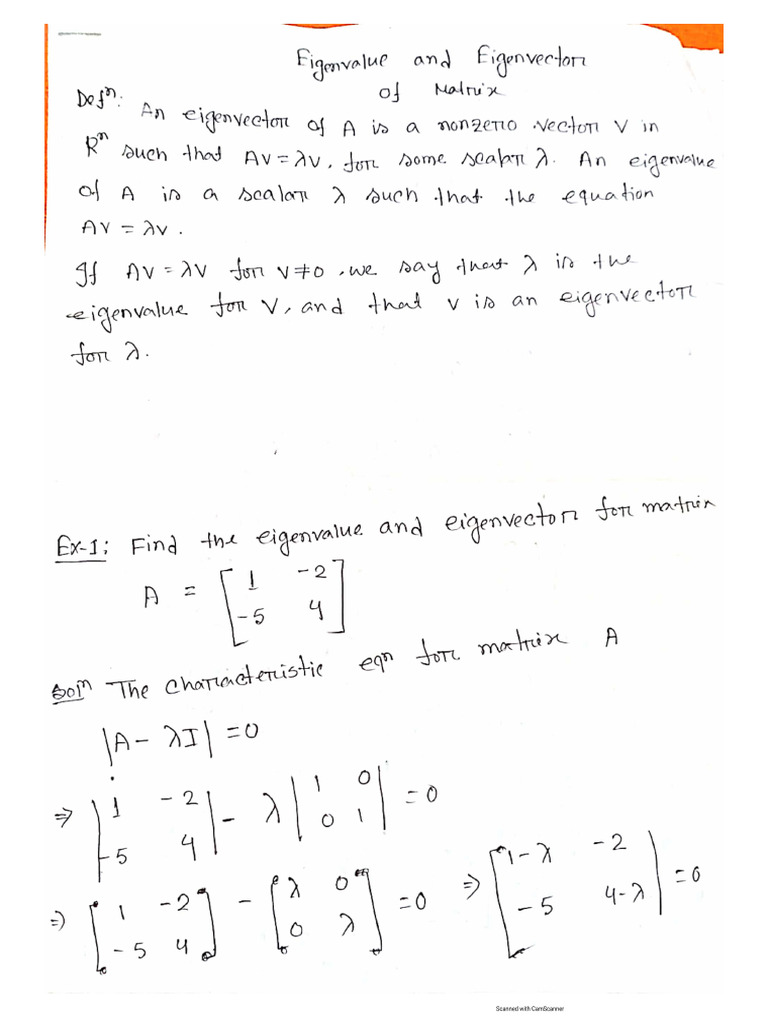 Eigenvalue and Eigenvector
of Matrix
Defⁿ: An eigenvector of A is a nonzero vector V in
Rⁿ such that AV = λV, for some scalar λ. An eigenvalue
of A is a scalar λ such that the equation
AV = λV.
If AV = λV for V ≠ 0, we say that λ is the
eigenvalue for V, and that V is an eigenvector
for λ.
Ex-1: Find the eigenvalue and eigenvector for matrix
A = [1 -2
-5 4]
Solⁿ The characteristic eqn for matrix A
|A - λI| = 0
⇒ |1 -2
-5 4| - λ |1 0
0 1| = 0
⇒ [1 -2
-5 4] - [λ 0
0 λ] = 0 ⇒ [1-λ -2
-5 4-λ| = 0
Scanned with CamScanner